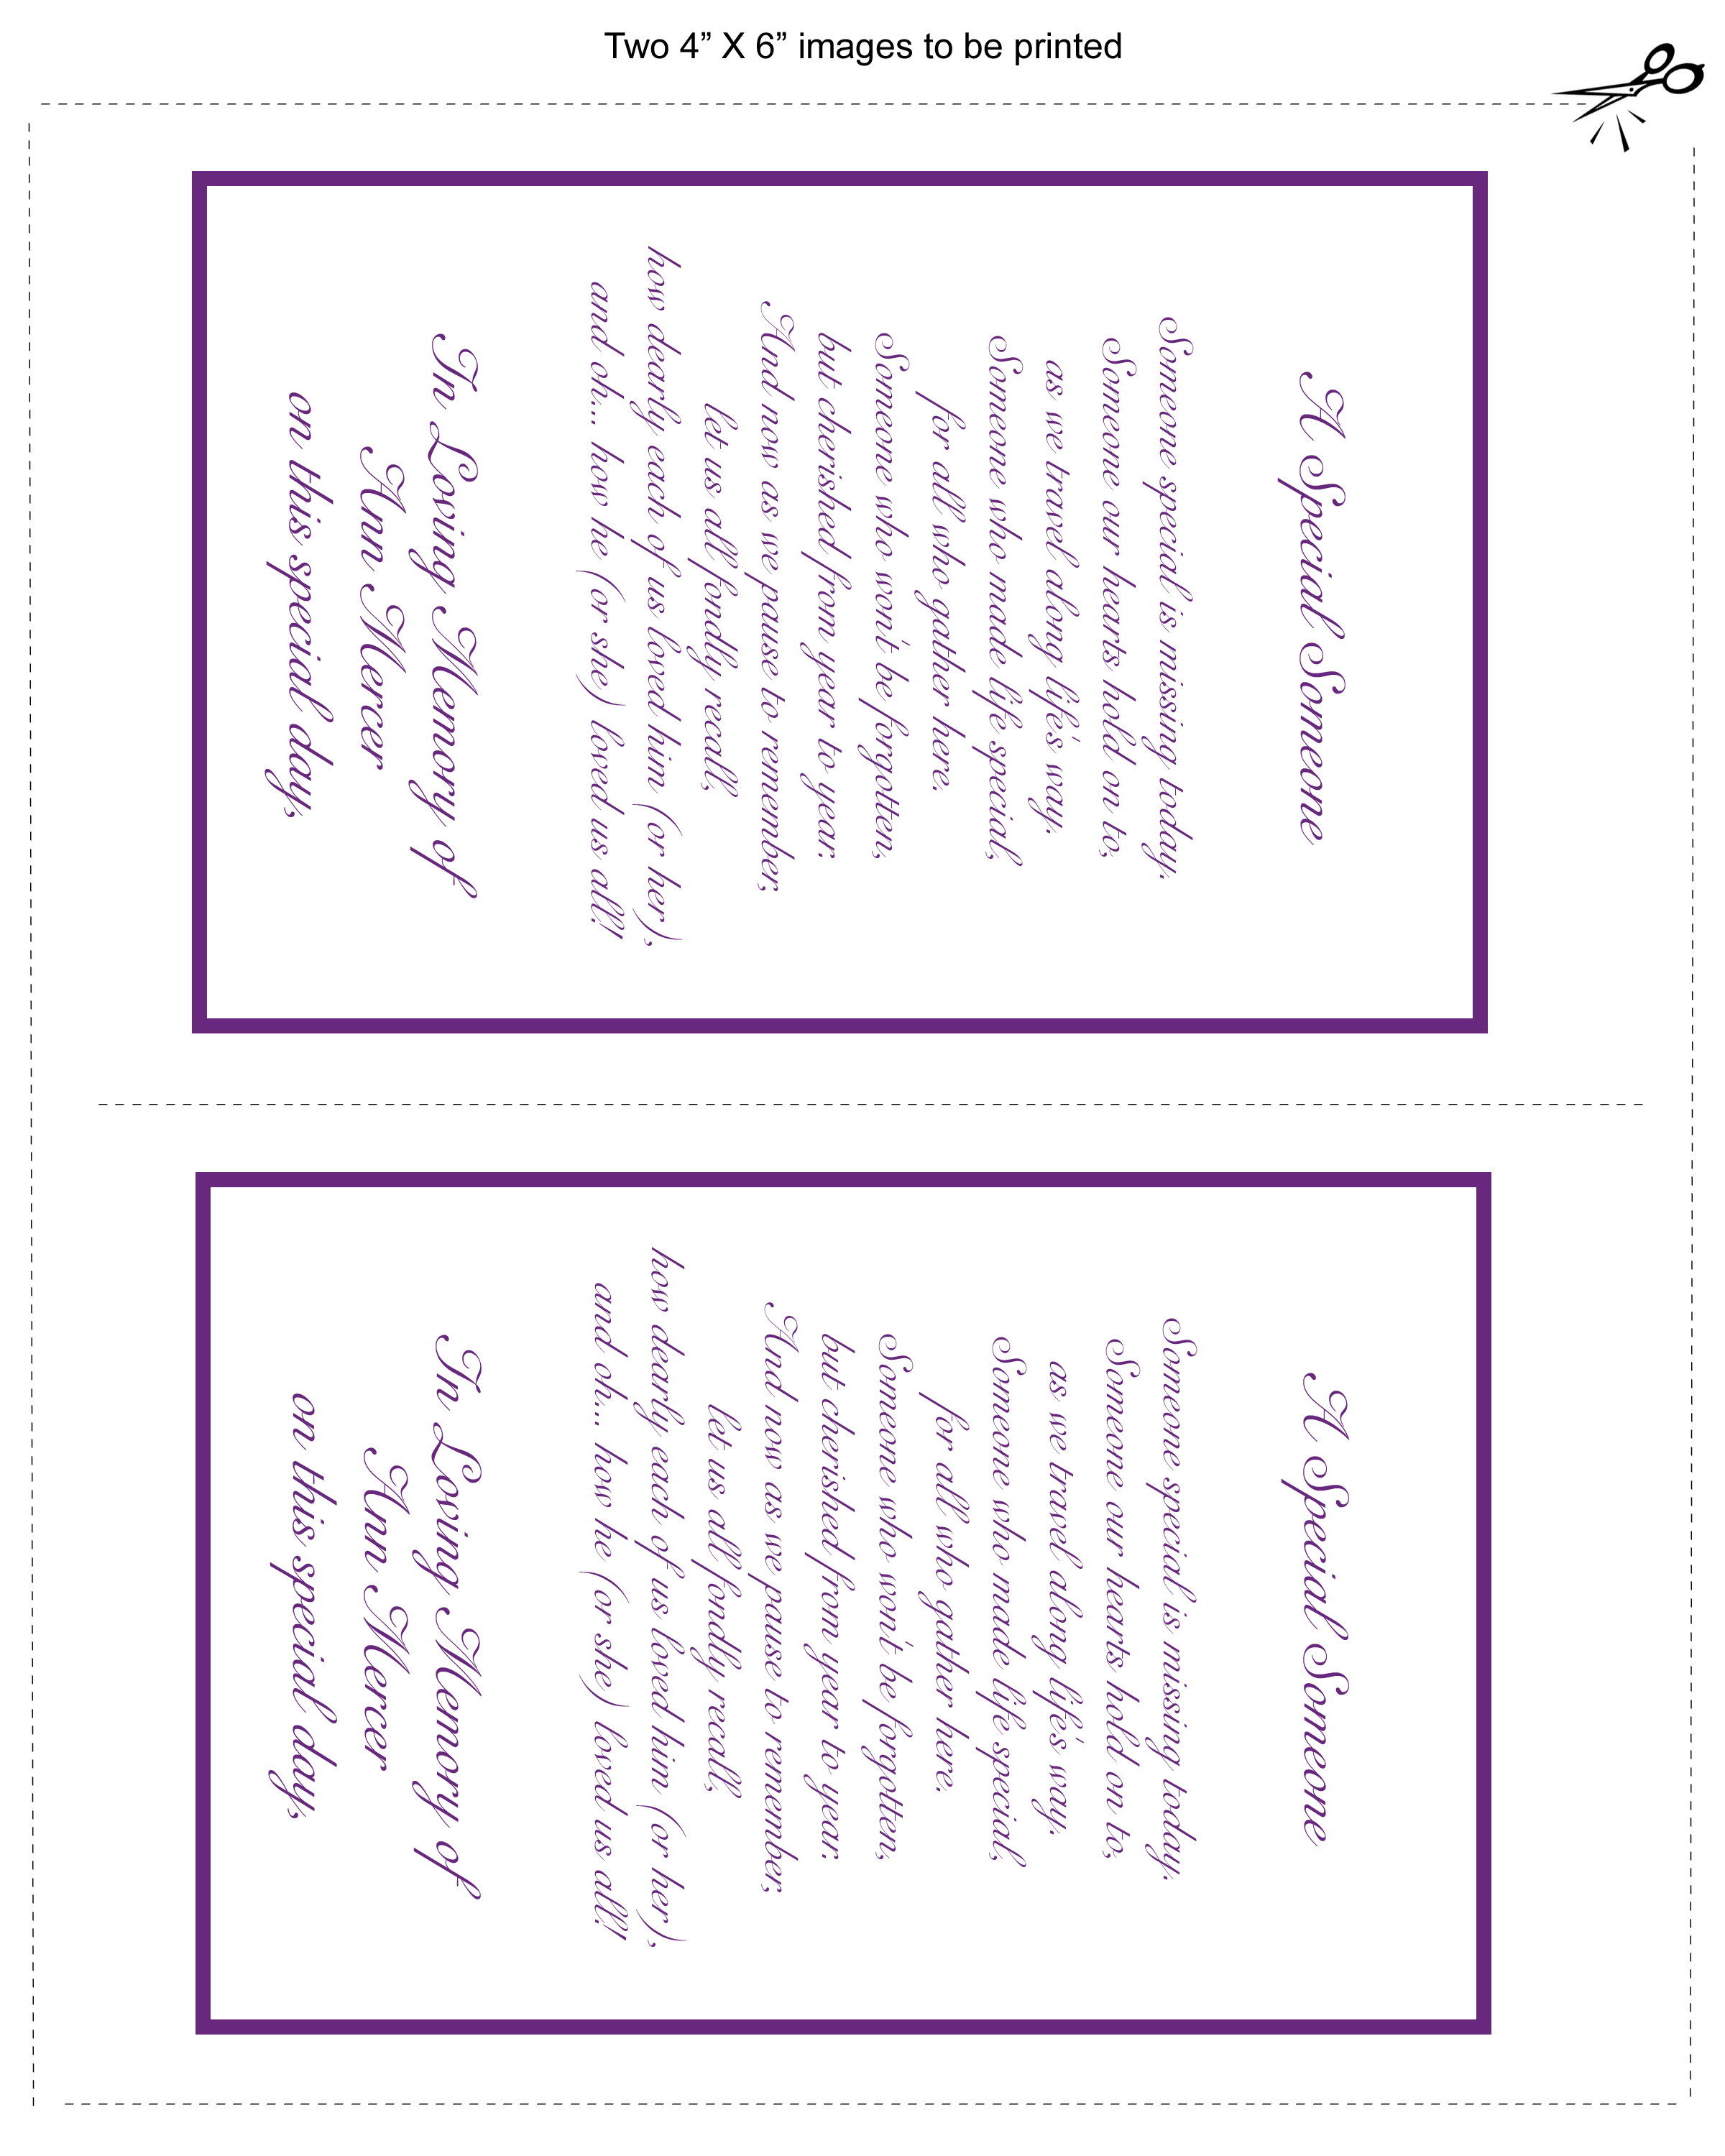 Two 4” X 6” images to be printed
A Special Someone
Someone special is missing today.
Someone our hearts hold on to,
as we travel along life's way.
Someone who made life special,
for all who gather here.
Someone who won't be forgotten,
but cherished from year to year.
And now as we pause to remember,
let us all fondly recall,
how dearly each of us loved him (or her),
and oh... how he (or she) loved us all!
In Loving Memory of
Ann Mercer
on this special day,
A Special Someone
Someone special is missing today.
Someone our hearts hold on to,
as we travel along life's way.
Someone who made life special,
for all who gather here.
Someone who won't be forgotten,
but cherished from year to year.
And now as we pause to remember,
let us all fondly recall,
how dearly each of us loved him (or her),
and oh... how he (or she) loved us all!
In Loving Memory of
Ann Mercer
on this special day,